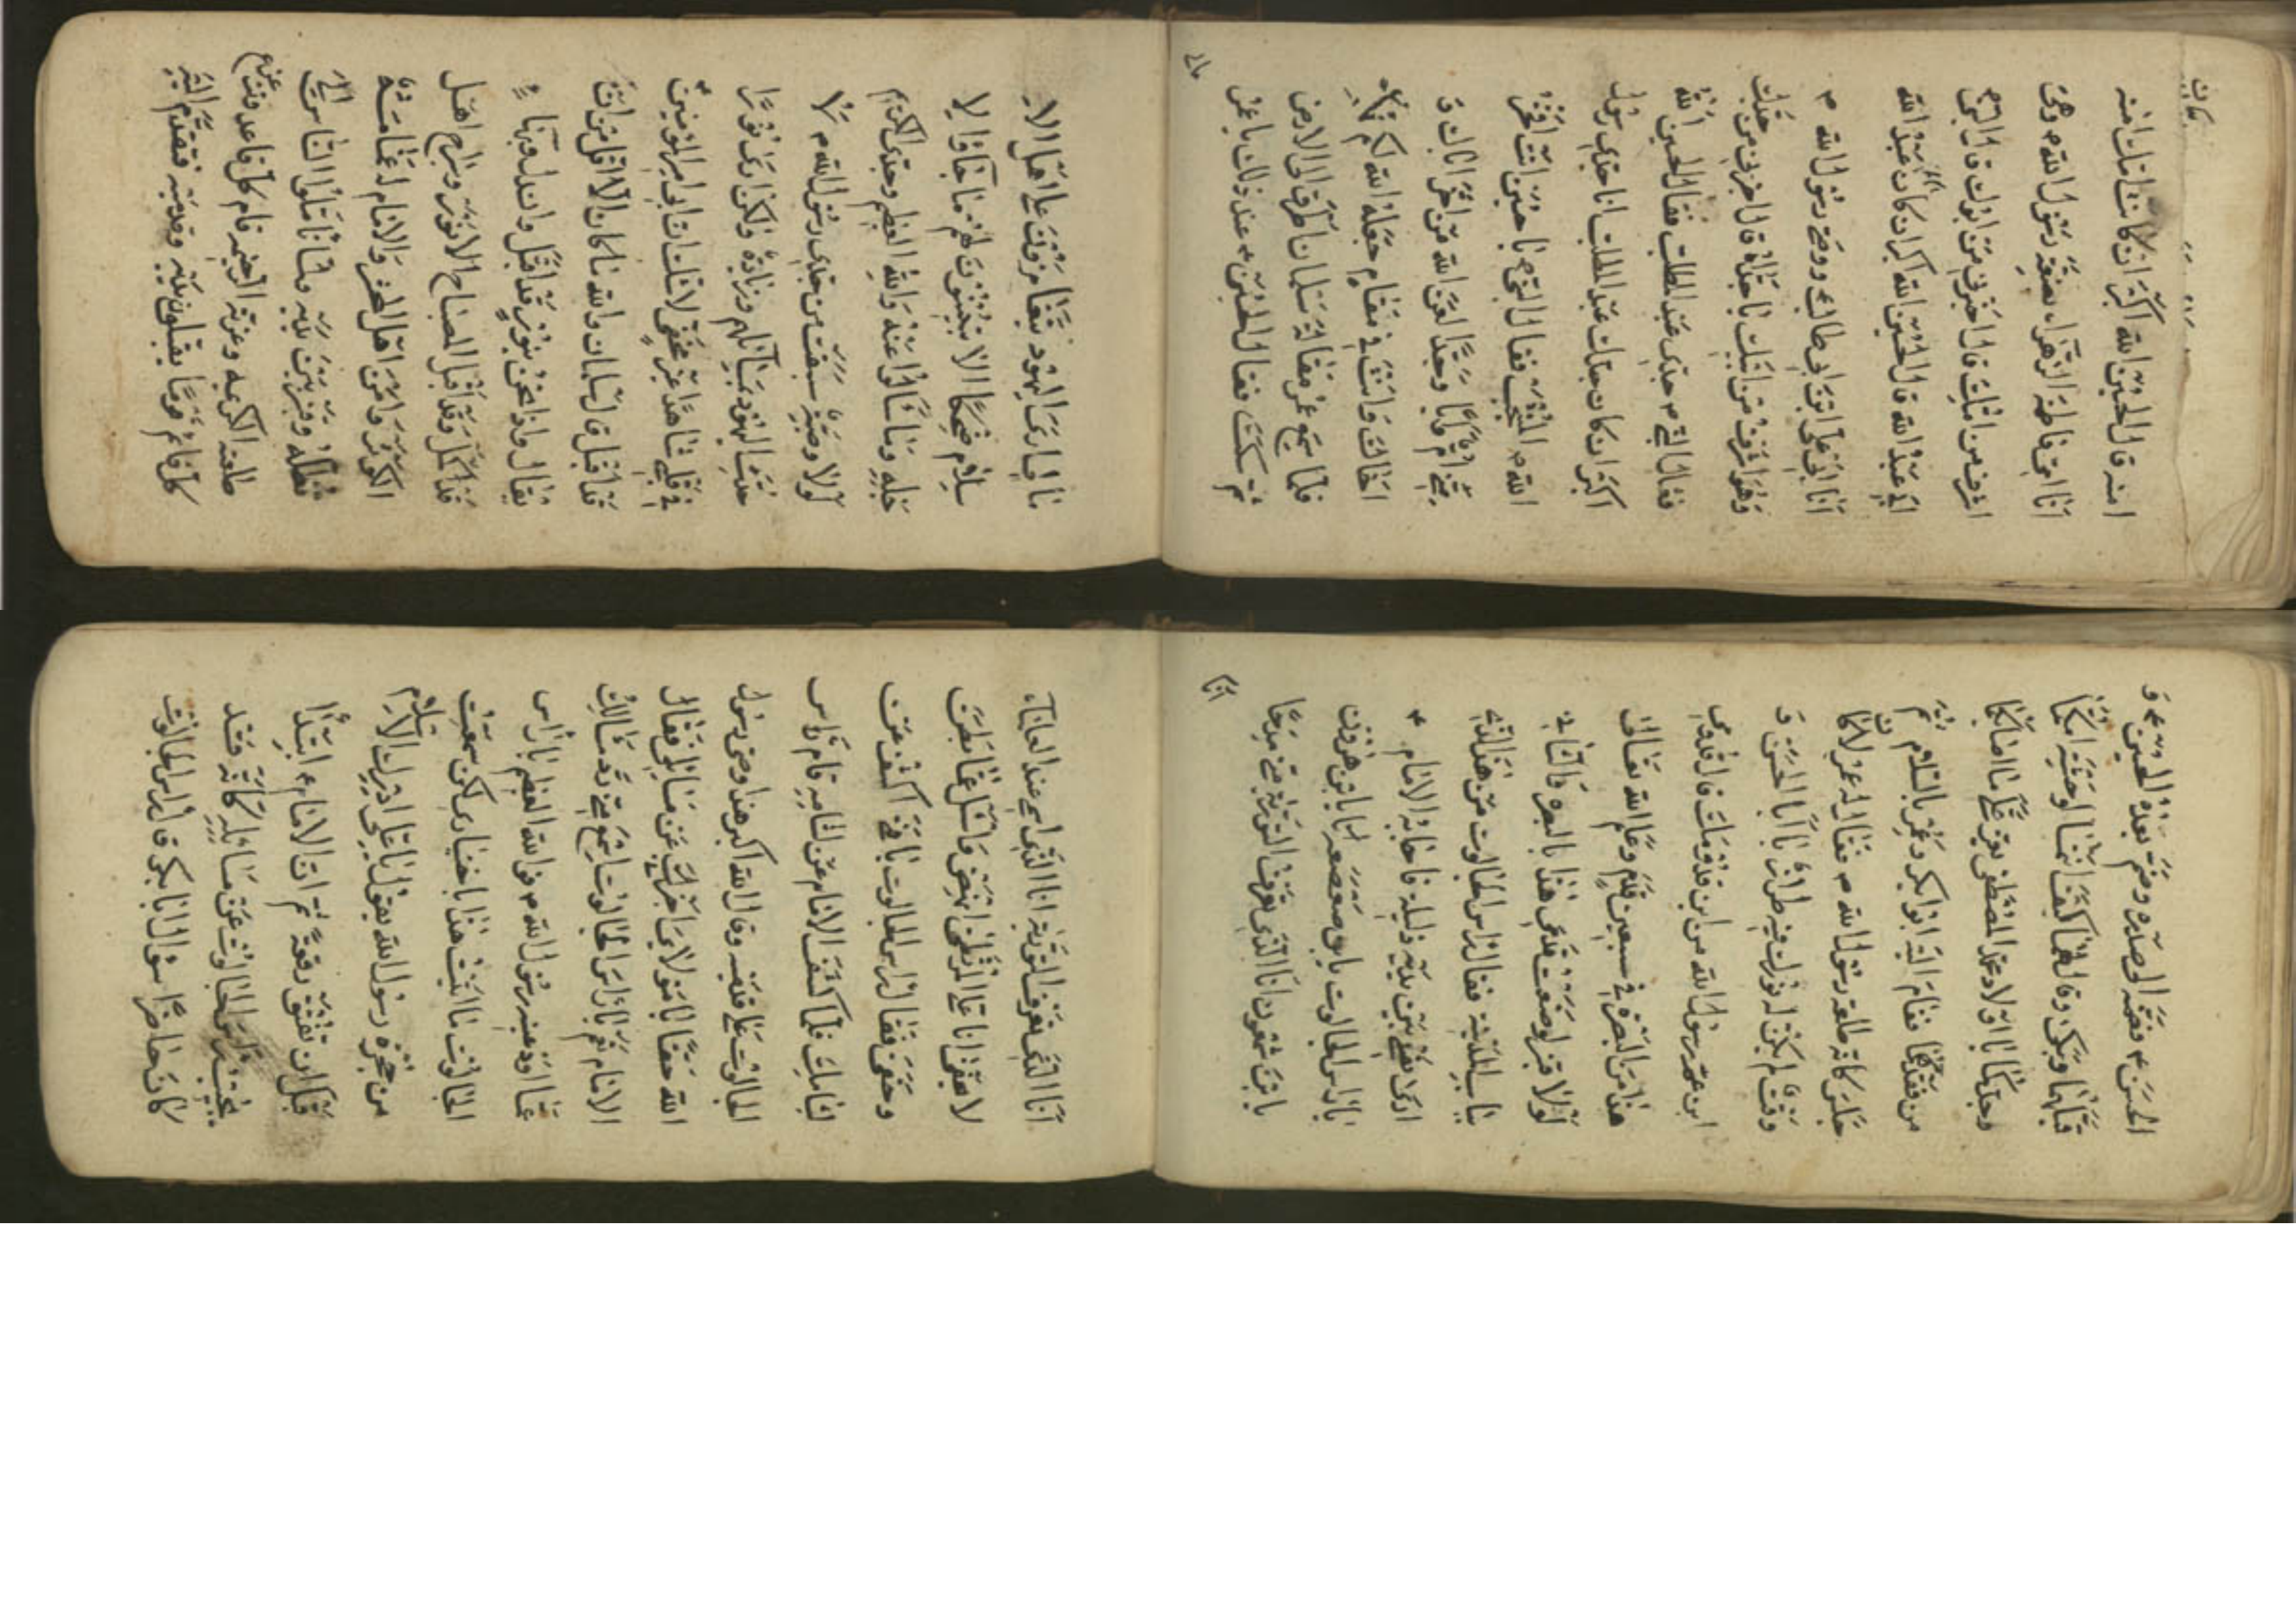 امنه قال الحسين الله اكبر ان كانت امك امنه
انا امي فاطمة الزهراء بضعة رسول الله وهي
اعرف من امك قال اخبرني من ابوك قال النبي
ابي عبد الله قال الحسين الله اكبر ان كان ابوك عبد الله
انا ابي علي ابن ابي طالب ووصي رسول الله ص
وهو اعرف من ابيك يا جداه قال اخبرني من جدك
فقال النبي جدي عبد المطلب فقال الحسين الله
اكبر ان كان جدك عبد المطلب انا جدي رسول
الله ص المنتجب فقال النبي يا حسين انت افخر
مني اما وابا وجدا لعن الله من اخر اباك و
اخاك وانت في مقام جعله الله لكم
فلما سمع عمر مقالة سلمان اطرق الى الارض
ثم سكت فقال الحسين ع عند ذلك يا عمر
مالي
مالي ارى اليهود تبعا على اهل الا
سلام ضحكا الا لهم ما جاؤا لا
جله وما سالوا عنه والله العظيم وجدي الكريم
لولا وصية سبقت من جدي رسول الله ص لا
اليهود بمسائلهم وزيادة ولكن ارى نورا
في قلبي شاهدا لاشك ان ابي امير المؤمنين
قد اقبل قال سلمان والله ما كان الا اقل من ان
يقال واذا نحن بنور قد اقبل وبهاء
قد اكمل وقد اقبل المصباح الانور وسراج اهل
الكوثر وامن اهل المحشر والامام لعمامته
ومن بين يديه الناس الى
طلعته الكريمه وغرته الرضيه قام كل قاعد وقعد
كل قائم قوما يقبلون يديه وقدميه فتقدم اليه
الحسن ع فضمه الى صدره وضم بعده الحسين ع و
قبلهما وبكى وقال لهما كيف انتما اوحشتما امكما
وجدكما يا اولاد محمد المصطفى يعز علي ما اصابكما
من فقدهما فقام اليه ابو بكر وعمر بالسلام ثم
جلس مكانه طلعة رسول الله ص فقال له عمر لا كان
وقت لم يكن له نورك فيه طراز يا ابا الحسن و
ابن عم رسول الله من اين قدومك قال قدومي
هذا من البصره في سبعين قدم وعلم الله تعالى
لولا لوضعت قدمي هذا بالبصره والثانية
بباب المدينه فقال راس الجالوت من هذا الذي
ارى نفسي بين يديه ذليلة فاجابه الامام ع
يا راس الجالوت يا بن صعصعه يا بن هارون
يا بن شمعون انا الذي تعرف التورية من مدحا
انا
انا الذي تعرف التورية انا الذي اسمي عند العلماء
لا يخفى انا علي المرتضى انهض واسئل عما تطلب
وحقق فقال راس الجالوت يا فتى اكشف عن
الشامة فلما كشف الامام عن الشامه قام راس
الجالوت على قدميه وقال الله اكبر هذا وصي رسول
الله حقا يا مولاي اخبرك عن مسائلي فقال
الامام نعم يا راس الجالوت اسمع مني رد مسائلك
عما اودعنيه رسول الله ص فوالله العظيم يا راس
الجالوت ما اتيت هذا باختياري لكن سمعت
من حجرة رسول الله يقول يا علي ادرك دين الاسلام
قبل ان تفتق رقعة ثم ان الامام ع ابتدأ
يجيب راس الجالوت عن مسائله كانه قد
كان حاضرا سؤال ابا بكر قال راس الجالوت